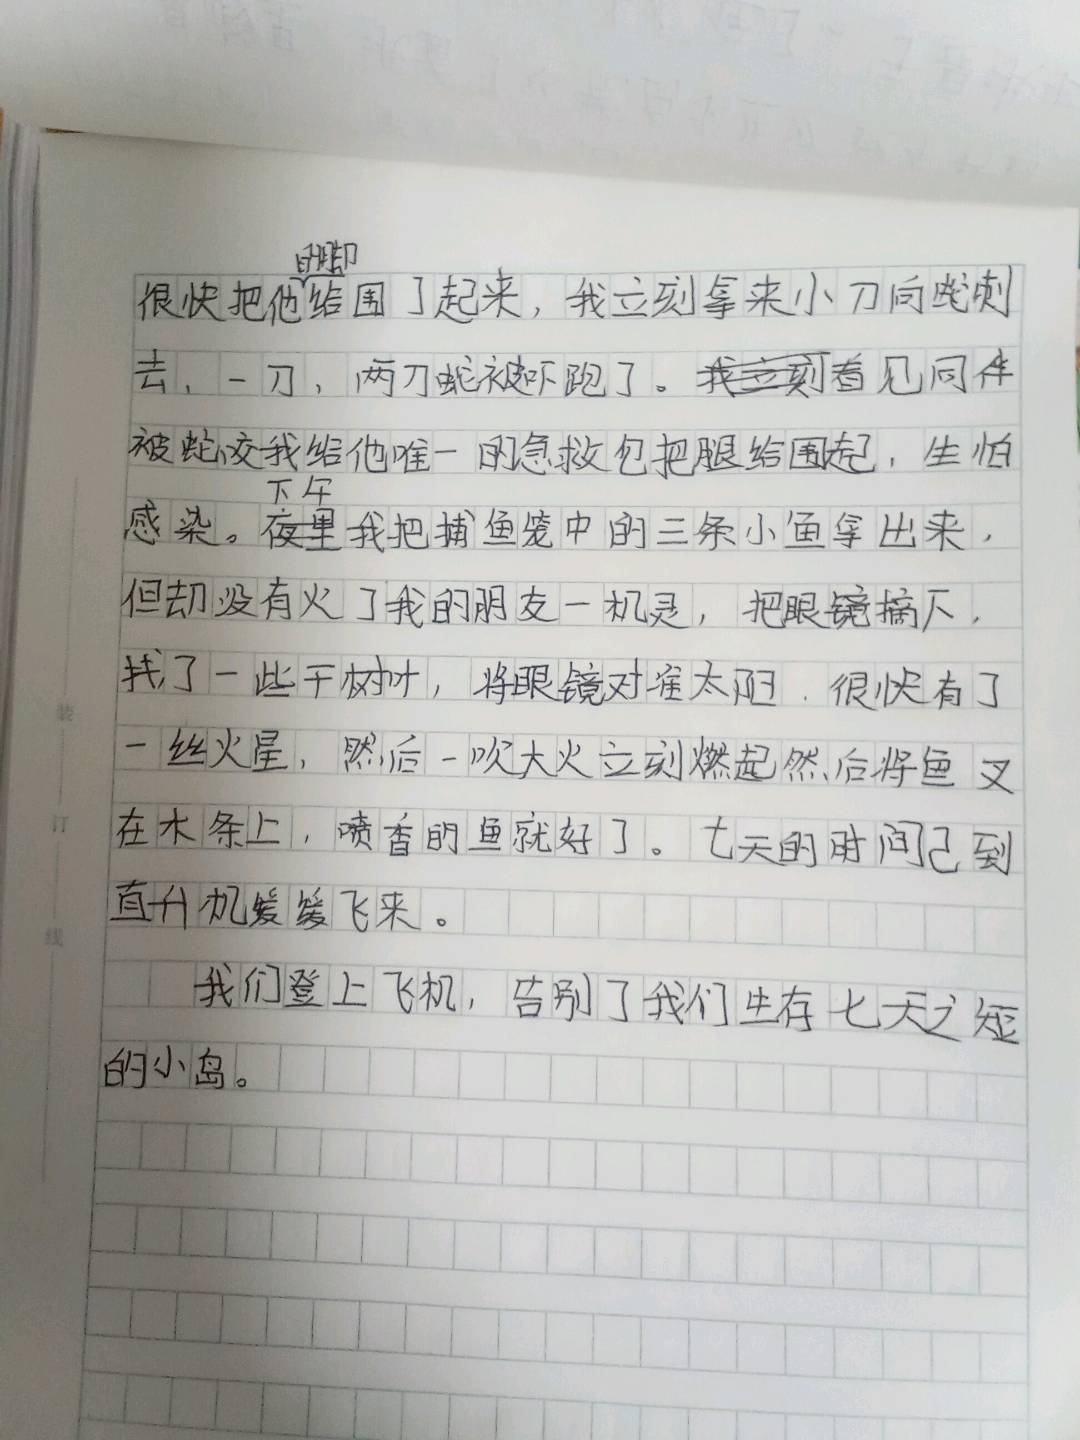 的脚
很快把他给围了起来，我立刻拿来小刀向蛇刺
去，一刀，两刀蛇被吓跑了。我立刻看见同伴
被蛇咬我给他唯一的急救包把腿给围起，生怕
下午
感染。夜里我把捕鱼笼中的三条小鱼拿出来，
但却没有火了我的朋友一机灵，把眼镜摘下，
找了一些干树叶，将眼镜对准太阳．很快有了
一丝火星，然后一吹大火立刻燃起然后将鱼叉
在木条上，喷香的鱼就好了。七天的时间己到
直升机缓缓飞来。
我们登上飞机，告别了我们生存七天之短
的小岛。
装
订
线